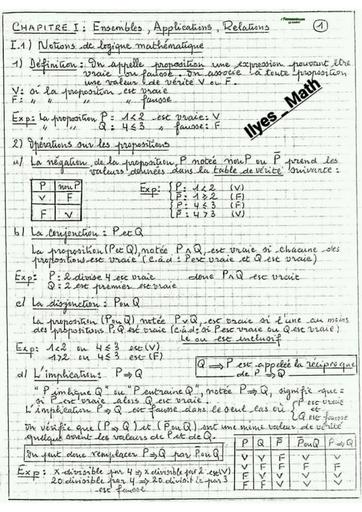 CHAPITRE I : Ensembles, Applications, Relations
1
I.1) Notions de logique mathématique
1) Définition : On appelle proposition une expression pouvant être
vraie ou fausse. On associe à toute proposition
une valeur de vérité V ou F.
V : si la proposition est vraie
F : " " " " fausse
Exp : la proposition P : 1<2 est vraie : V
" " Q : 4≤3 " fausse : F
Ilyes _ Math
2) Opérations sur les propositions
a) La négation de la proposition P notée nonP ou P̅ prend les
valeurs données dans la table de vérité suivante :
P nonP
V F
F V
Exp : P : 1<2 (V)
P̅ : 1≥2 (F)
P : 4≤3 (F)
P̅ : 4>3 (V)
b) La conjonction : P et Q
La proposition (P et Q), notée P∧Q, est vraie si chacune des
propositions est vraie (c.à.d : P est vraie et Q est vraie)
Exp : P : 2 divise 4 est vraie donc P∧Q est vraie
Q : 2 est premier est vrai
c) La disjonction : P ou Q
La proposition (P ou Q) notée P∨Q, est vraie si l'une au moins
des propositions P, Q est vraie (c.à.d : si P est vraie ou Q est vraie)
Le ou est inclusif
Exp : 1<2 ou 4≤3 est (V)
1>2 ou 4≤3 est (F)
Q ⇒ P est appelée la réciproque
de P ⇒ Q
d) L'implication : P ⇒ Q
"P implique Q" ou "P entraine Q", notée P⇒Q, signifie que :
si P est vraie alors Q est vraie.
L'implication P ⇒ Q est fausse dans le seul cas où P est vraie
et
Q est fausse
On vérifie que (P⇒Q) et (P̅ ou Q) ont une même valeur de vérité
quelque soient les valeurs de P et de Q.
On peut donc remplacer P⇒Q par P̅ ou Q
P Q P̅ P̅ou Q P⇒Q
V V F V V
V F F F F
F V V V V
F F V V V
Exp : x divisible par 4 ⇒ x divisible par 2 est (V)
20 divisible par 4 ⇒ 20 divisible par 3
est fausse